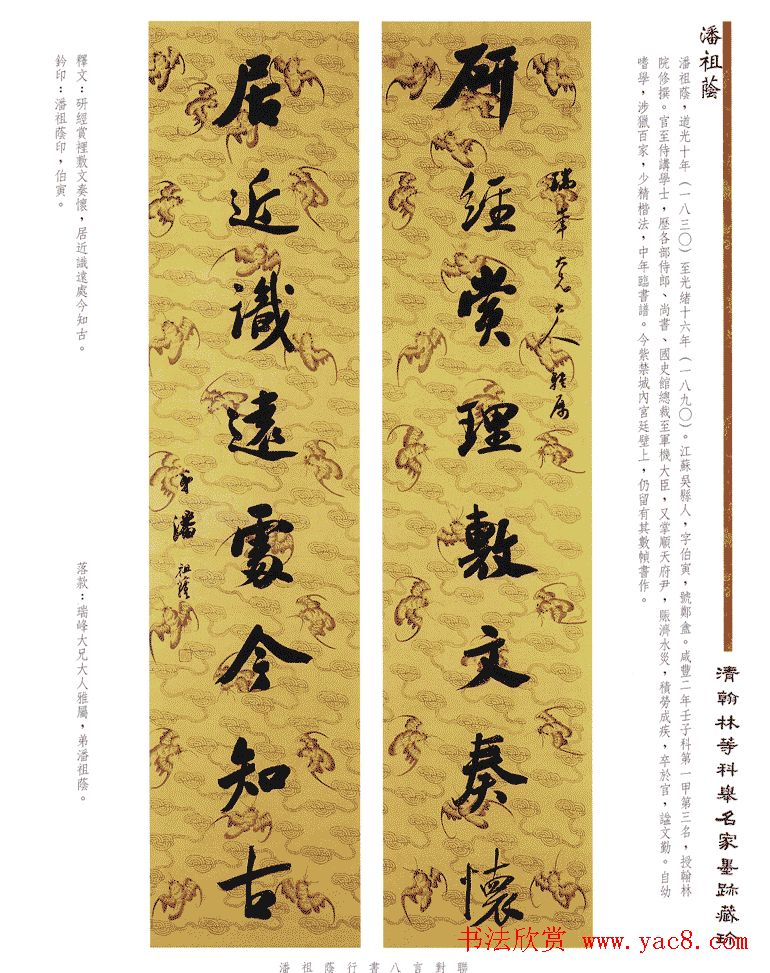 潘祖蔭
清翰林等科舉名家墨跡藏珍
潘祖蔭，道光十年（一八三〇）至光緒十六年（一八九〇）。江蘇吳縣人，字伯寅，號鄭盦。咸豐二年壬子科第一甲第三名，授翰林
院修撰。官至侍講學士，歷各部侍郎、尚書、國史館總裁至軍機大臣，又掌順天府尹，賑濟水災，積勞成疾，卒於官，諡文勤。自幼
嗜學，涉獵百家，少精楷法，中年臨書譜。今紫禁城內宮廷壁上，仍留有其數幀書作。
瑞峯大兄大人雅屬
研經賞理敷文奏懷
居近識遠處今知古
弟潘祖蔭
釋文：研經賞裡敷文奏懷，居近識遠處今知古。
鈐印：潘祖蔭印，伯寅。
落款：瑞峰大兄大人雅屬，弟潘祖蔭。
潘祖蔭行書八言對聯
书法欣赏 www.yac8.com